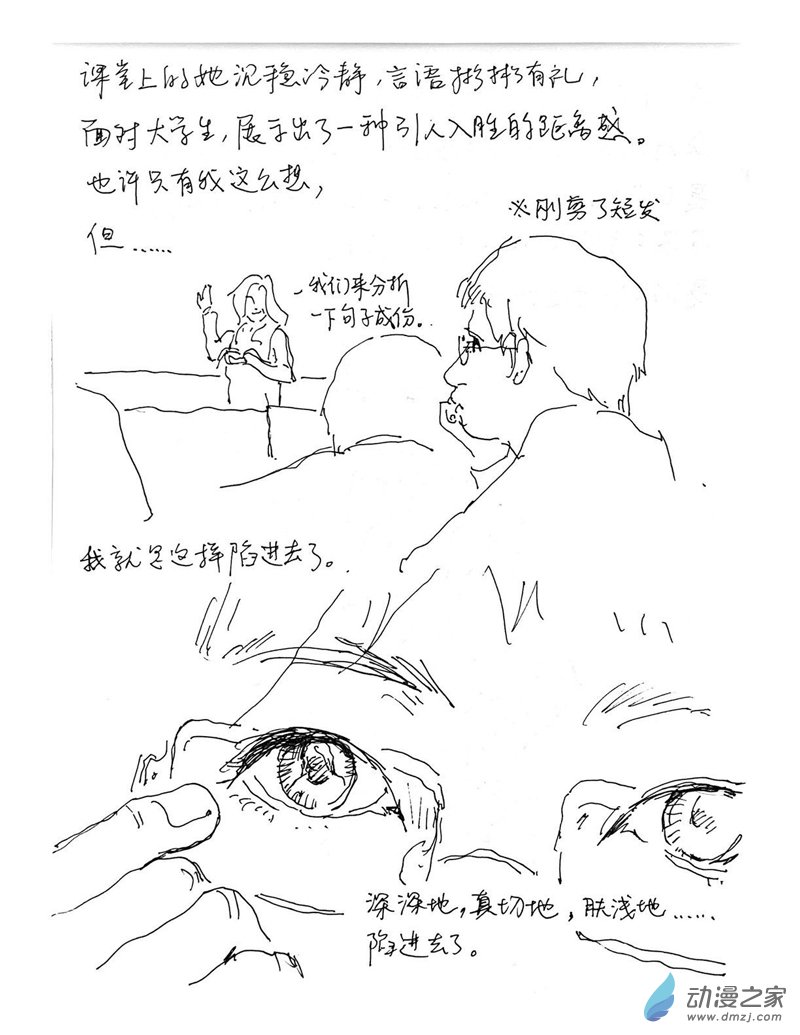 课堂上的她沉稳冷静，言语彬彬有礼，
面对大学生，展示出了一种引人入胜的距离感。
也许只有我这么想，
但……
※刚剪了短发
我们来分析
一下句子成份。
我就是这样陷进去了。
深深地，真切地，肤浅地……
陷进去了。
动漫之家
www.dmzj.com